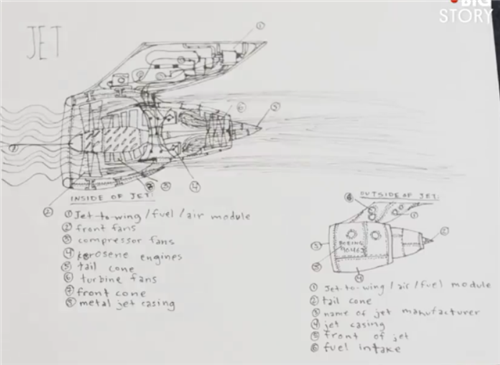 BIG
STORY
JET
INSIDE OF JET
① Jet-to-wing/fuel/air module
② front fans
③ compressor fans
④ kerosene engines
⑤ tail cone
⑥ turbine fans
⑦ front cone
⑧ metal jet casing
OUTSIDE OF JET
① Jet-to-wing/air/fuel module
② tail cone
③ name of jet manufacturer
④ jet casing
⑤ front of jet
⑥ fuel intake